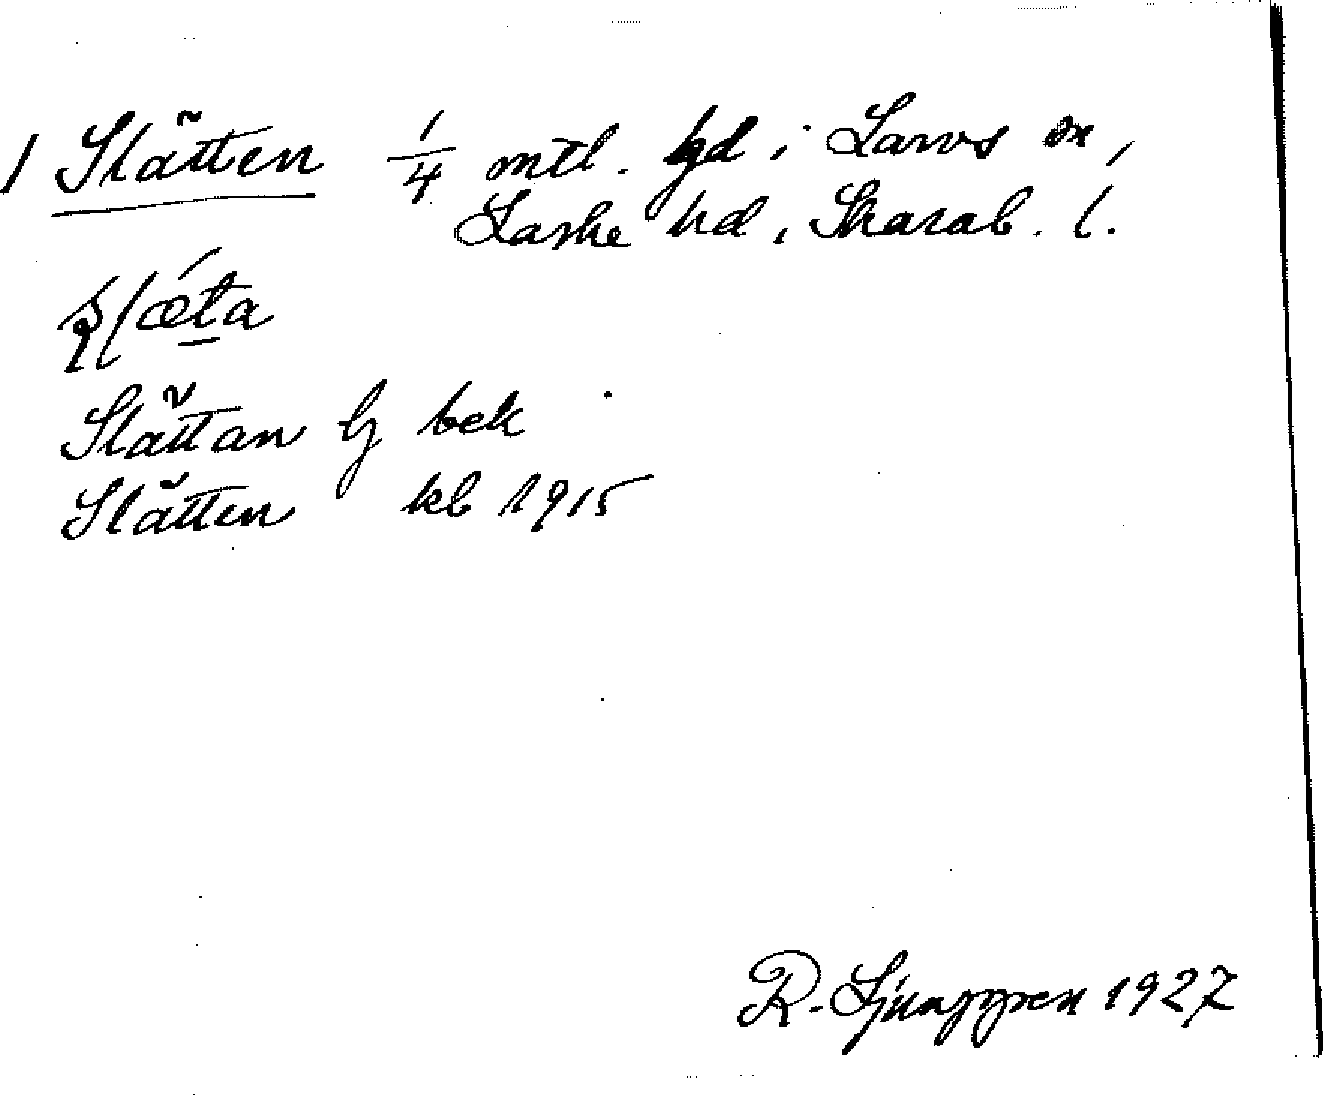 1 Slätten 1/4 mtl. gd i Larvs sn,
Laske hd, Skarab. l.
ʂlǽta
Slättan Gj bek
Slätten kb 1915
R. Ljunggren 1927